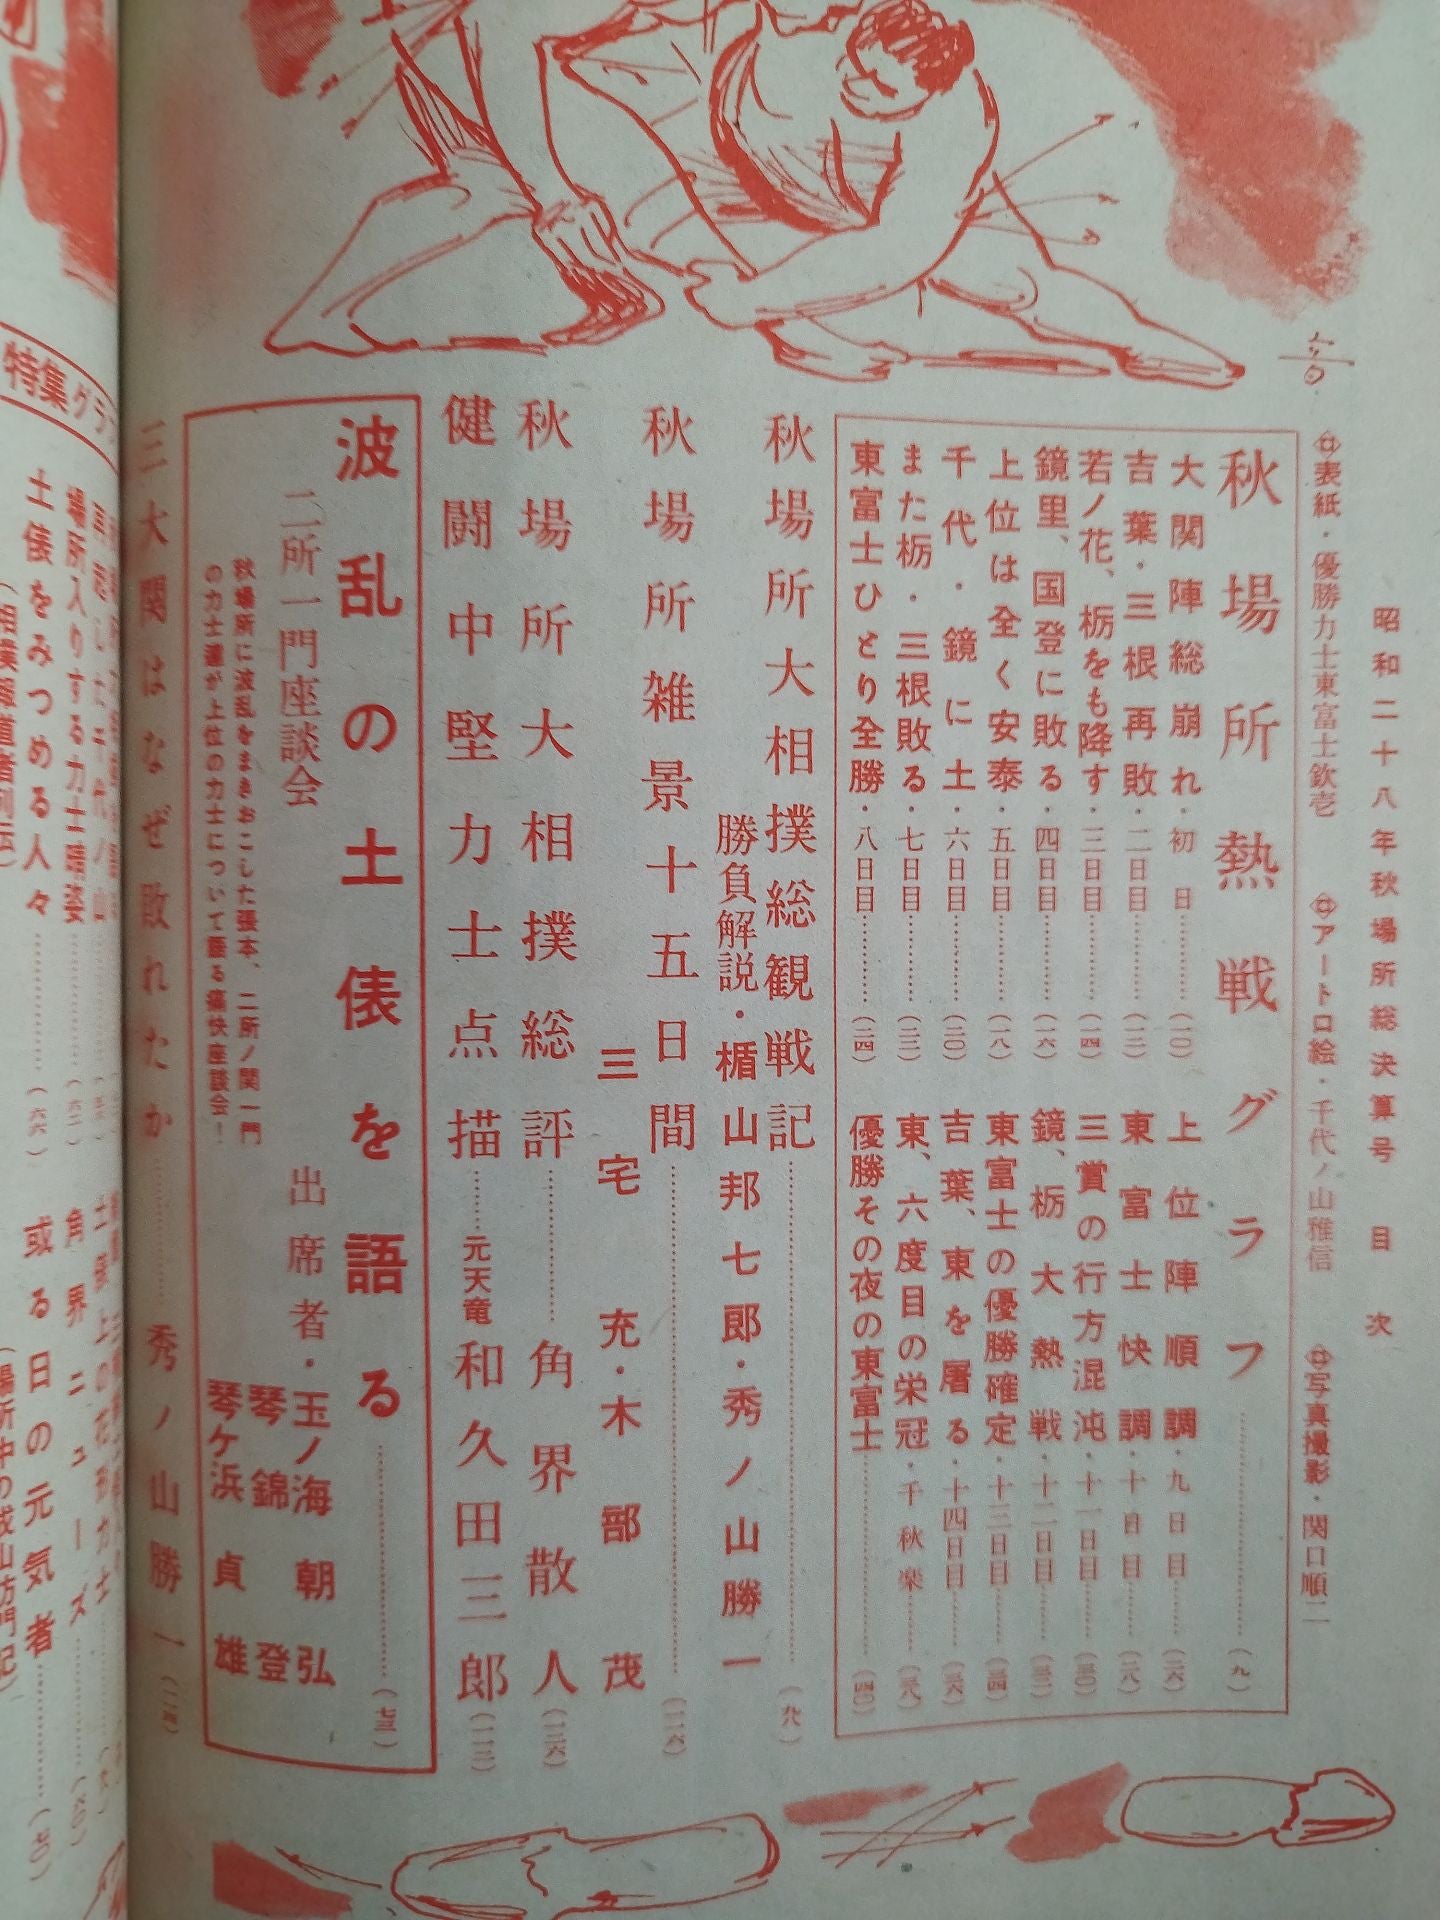 昭和二十八年秋場所総決算号 目次
表紙・優勝力士東富士欽壱
アートロ絵・千代ノ山雅信
写真撮影・関口順二
秋場所熱戦グラフ……(九)
大関陣総崩れ・初日……(一〇)
吉葉・三根再敗・二日目……(一二)
若ノ花、栃をも降す・三日目……(一四)
鏡里、国登に敗る・四日目……(一六)
上位は全く安泰・五日目……(一八)
千代・鏡に土・六日目……(二〇)
また栃・三根敗る・七日目……(二二)
東富士ひとり全勝・八日目……(二四)
上位陣順調・九日目……(二六)
東富士快調・十日目……(二八)
三賞の行方混沌・十一日目……(三〇)
鏡、栃大熱戦・十二日目……(三二)
東富士の優勝確定・十三日目……(三四)
吉葉、東を屠る・十四日目……(三六)
東、六度目の栄冠・千秋楽……(三八)
優勝その夜の東富士……(四〇)
秋場所大相撲総観戦記……(九八)
勝負解説・楯山邦七郎・秀ノ山勝一
秋場所雑景十五日間……(一一六)
三宅充・木部茂
秋場所大相撲総評……角界散人(一二六)
健闘中堅力士点描……元天竜 和久田三郎(一一二)
波乱の土俵を語る……(七三)
二所一門座談会
秋場所に波乱をまきおこした張本、二所ノ関一門
の力士達が上位の力士について語る痛快座談会!
出席者・玉ノ海朝弘
琴錦登
琴ケ浜貞雄
三大関はなぜ敗れたか……秀ノ山勝一
特集グラ
場所入りする力士晴姿
土俵をみつめる人々
(相撲報道者列伝)
角界ニューズ
或る日の元気者